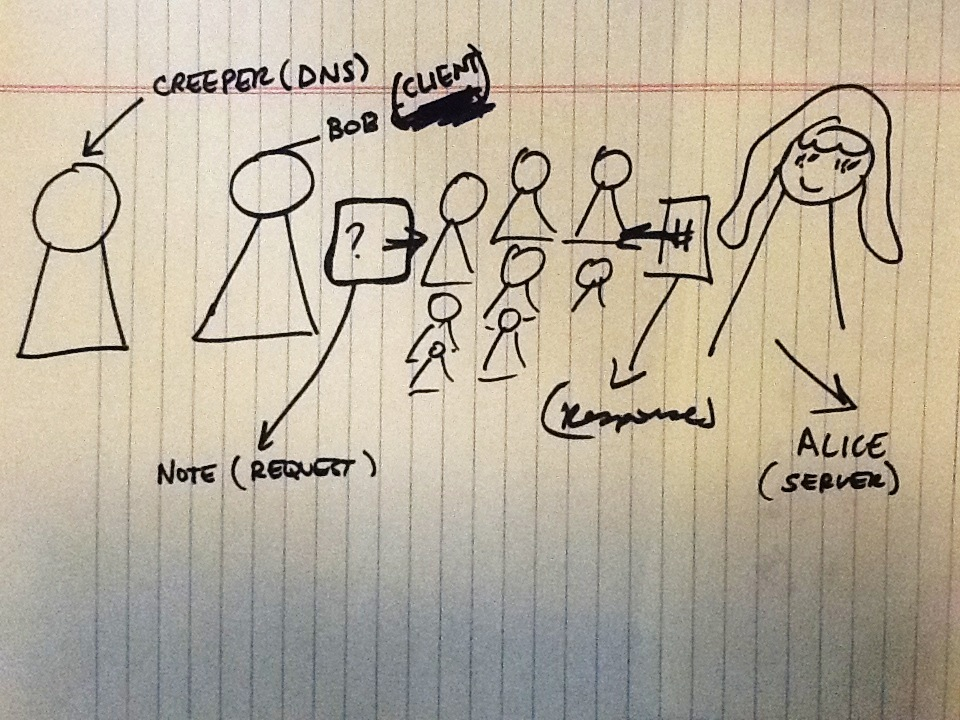 CREEPER (DNS)
BOB (CLIENT)
?
#
NOTE (REQUEST)
(Response)
ALICE
(SERVER)